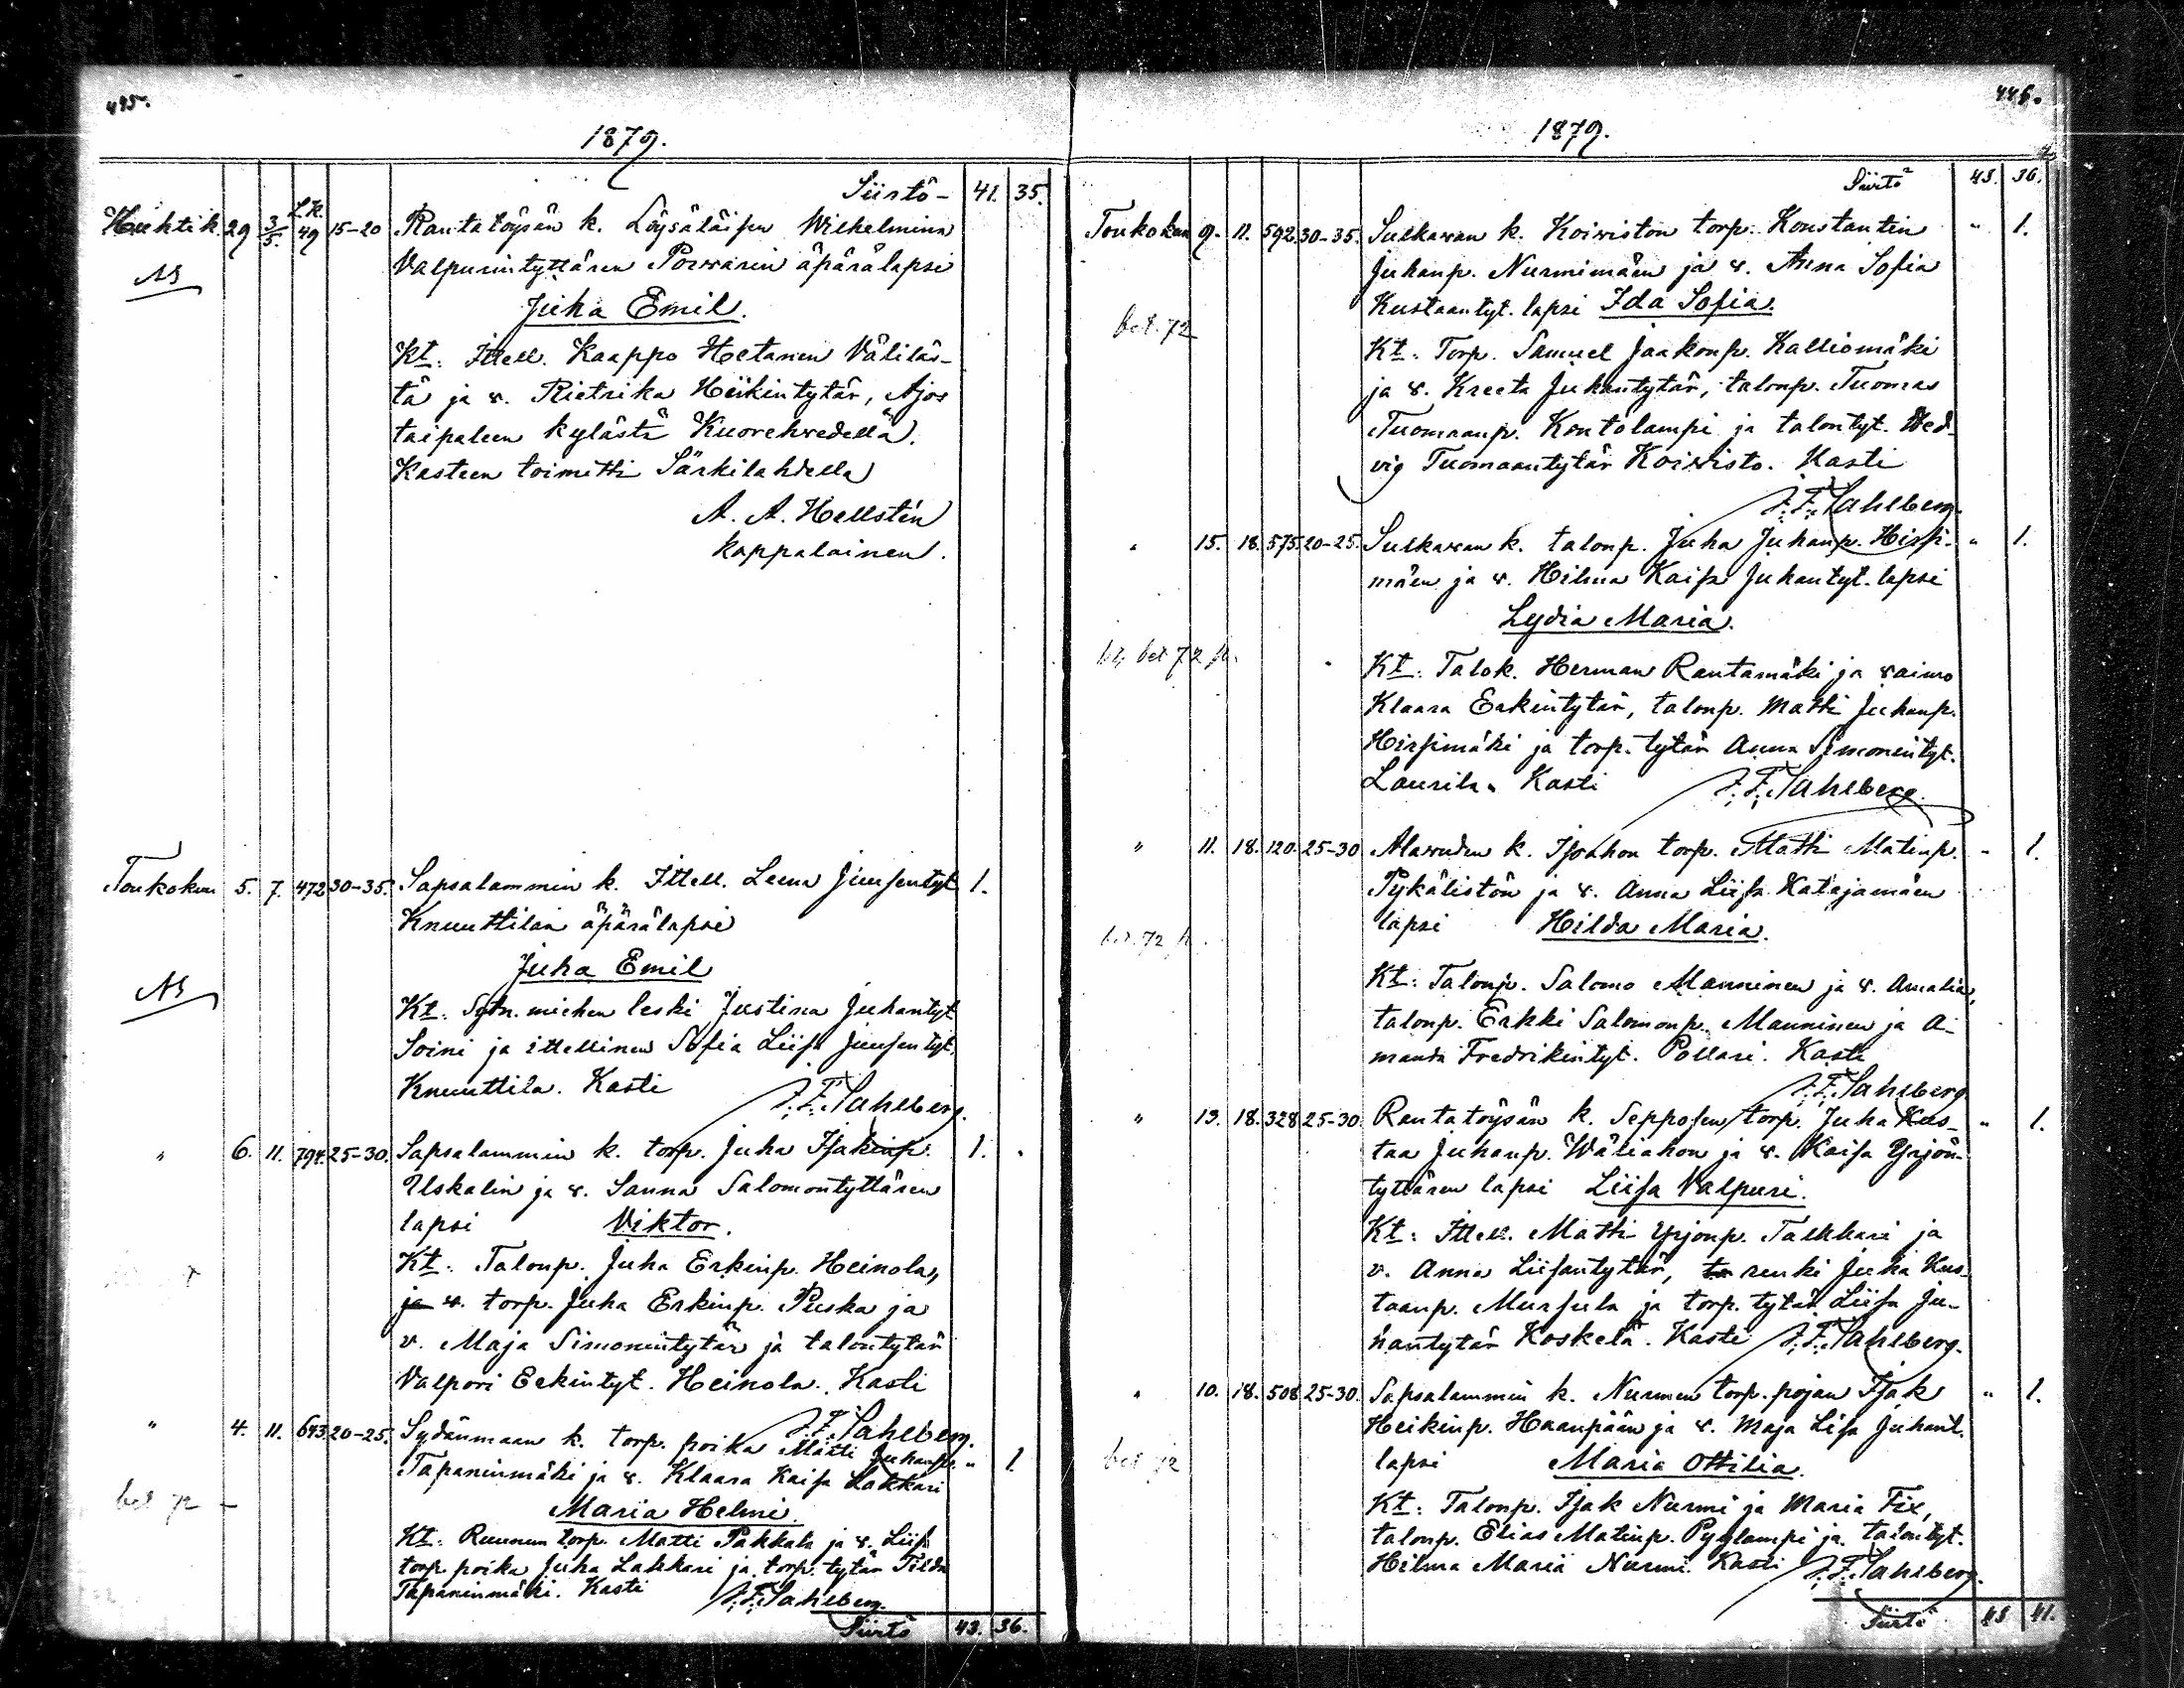 495.
1879.
Siirtö - 41. 35.
Huhtik. 29 3/5. L.K. 49 15-20 Rantatöysän k. Löysäläisen Wilhelmina
Valpurintyttären Porvarin äpärälapsi
Juha Emil.
Kt: Ittell. Kaappo Hetanen Väliläs-
tä ja v. Rietrika Heikintytär, Ajos
taipaleen kylästä Kuorehvedellä.
Kasteen toimitti Särkilahdella
A. A. Hellstén
kappalainen.
Toukokuu 5. 7. 472 30-35. Sapsalammin k. Ittell. Leena Juusentyt. 1.
Knuuttilan äpärälapsi
Juha Emil
Kt: Sotn. miehen leski Justina Juhantyt
Soini ja ittellinen Sofia Liisa Juusentyt.
Knuuttila. Kasti
J. F. Sahlberg.
" 6. 11. 794. 25-30. Sapsalammin k. torp. Juha Isakinp. 1.
Uskalin ja v. Sanna Salomontyttären
lapsi Viktor.
Kt: Talonp. Juha Erkinp. Heinola,
ja v. torp. Juha Erkinp. Puska ja
v. Maja Simonintytär ja talontytär
Valpori Erkintyt. Heinola. Kasti
J. F. Sahlberg.
" 4. 11. 643. 20-25. Sydänmaan k. torp. poika Matti Juhanp. " 1.
Tapaninmäki ja v. Klaara Kaisa Lakkari
bet 72 -
Maria Helmi.
Kt: Ruunun torp. Matti Pakkala ja v. Liisa
torp. poika Juha Lakkari ja torp. tytär Tilda
Tapaninmäki. Kasti J. F. Sahlberg.
Siirtö 43. 36.
446.
1879.
Siirtö 43. 36.
Toukokuu 9. 11. 592. 30-35. Sulkavan k. Koiviston torp. Konstantin " 1.
Juhanp. Nurmimäen ja v. Anna Sofia
Kustaantyt. lapsi Ida Sofia.
bet. 72
Kt: Torp. Samuel Jaakonp. Kalliomäki
ja v. Kreeta Juhantytär, talonp. Tuomas
Tuomaanp. Kontolampi ja talontyt. Hed-
vig Tuomaantytär Koivisto. Kasti
J. F. Sahlberg.
" 15. 18. 575. 20-25. Sulkavan k. talonp. Juha Juhanp. Hirsi- " 1.
mäen ja v. Hilma Kaisa Juhantyt. lapsi
Lydia Maria.
bet 72
Kt: Talok. Herman Rantamäki ja vaimo
Klaara Erkintytär, talonp. Matti Juhanp.
Hirsimäki ja torp. tytär Anna Simonintyt.
Laurila. Kasti J. F. Sahlberg.
" 11. 18. 120. 25-30 Alavuden k. Isoahon torp. Matti Matinp. - 1.
Pykälistön ja v. Anna Liisa Katajamäen
lapsi Hilda Maria.
bet. 72
Kt: Talonp. Salomo Manninen ja v. Amalia,
talonp. Erkki Salomonp. Manninen ja A-
manda Fredrikintyt. Pollari. Kasti
J. F. Sahlberg
" 13. 18. 328 25-30. Rantatöysän k. Sepposen torp. Juha Kus- " 1.
taa Juhanp. Wäliahon ja v. Kaisa Yrjön-
tyttären lapsi Liisa Valpuri.
Kt: Ittell. Matti Yrjönp. Talkkari ja
v. Anna Liisantytär, to renki Juha Kus-
taanp. Mursula ja torp. tytär Liisa Ju-
hantytär Koskela. Kasti J. F. Sahlberg.
" 10. 18. 508 25-30. Sapsalammin k. Nurmen torp. pojan Isak " 1.
Heikinp. Haanpään ja v. Maja Lisa Juhant.
lapsi Maria Ottilia.
bet 72
Kt: Talonp. Isak Nurmi ja Maria Fix,
talonp. Elias Matinp. Pyylampi ja talontyt.
Hilma Maria Nurmi. Kasti J. F. Sahlberg.
Siirtö 43 41.